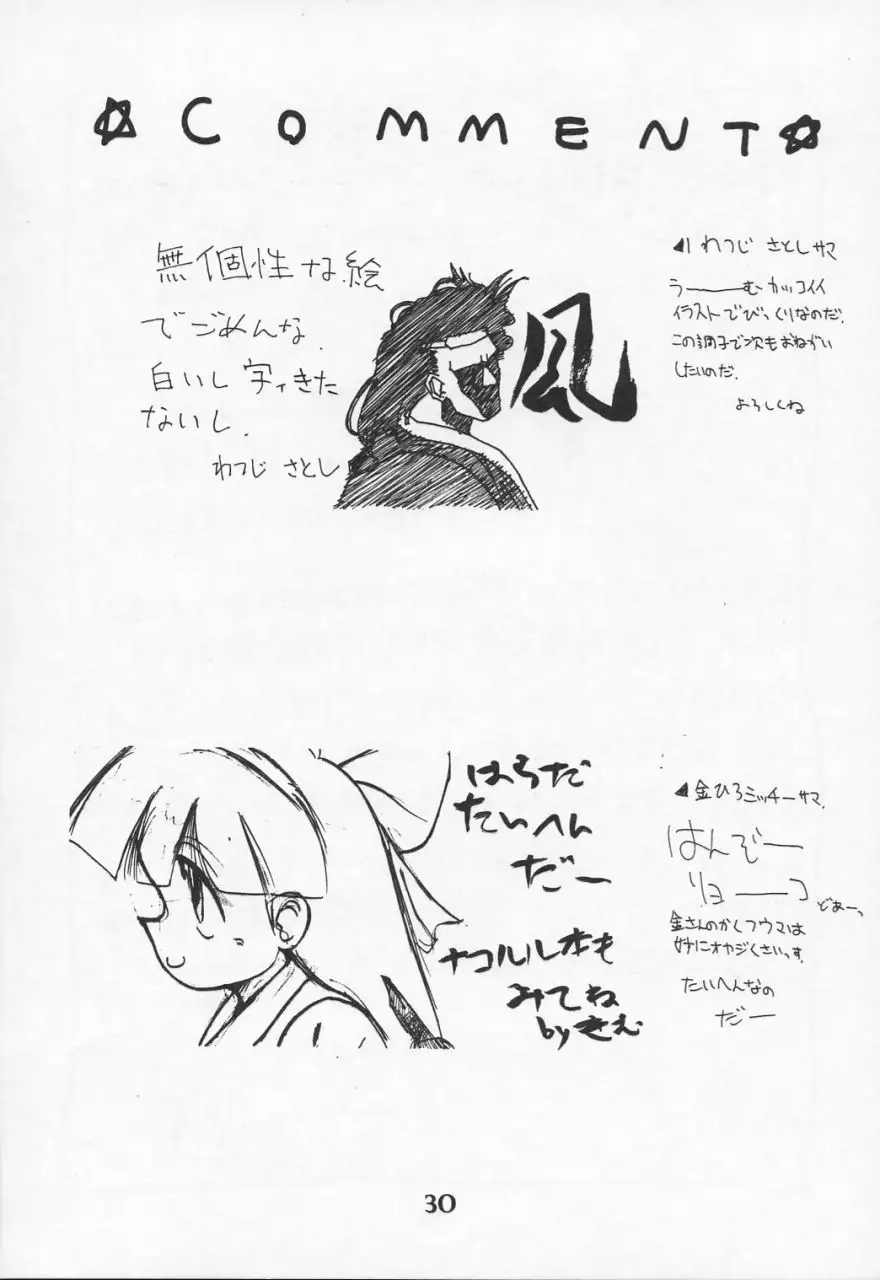 ☆COMMENT☆
無個性な絵
でごめんな.
白いし 字ィきた
ないし.
わつじ さとし
風
◀わつじ さとしサマ
う——む カッコイイ
イラストでびっくりなのだ.
この調子で次もおねがい
したいのだ.
よろしくね
はらだ
たいへん
だー
ナコルル本も
みてね
by きむ
◀金ひろミッチーサマ.
はんぞー
リョーコ
どあーっ
金さんのかくフウマは
妙にオヤジくさいっす.
たいへんなの
だー
30